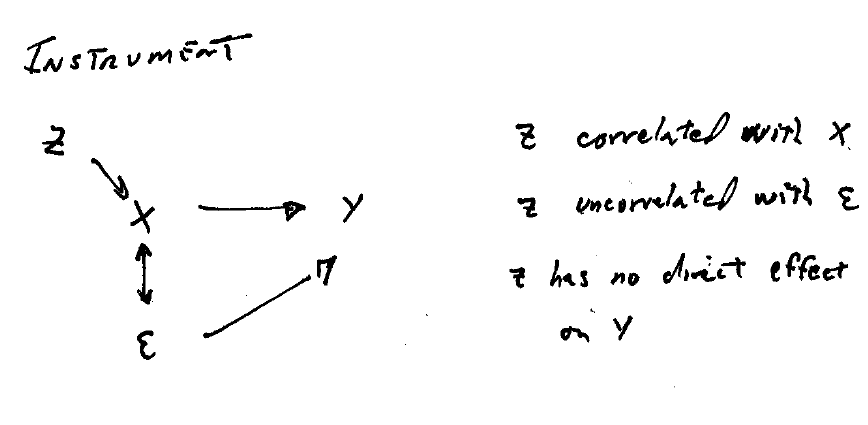 INSTRUMENT
Z
X
Y
ε
Z correlated with X
Z uncorrelated with ε
Z has no direct effect
on Y